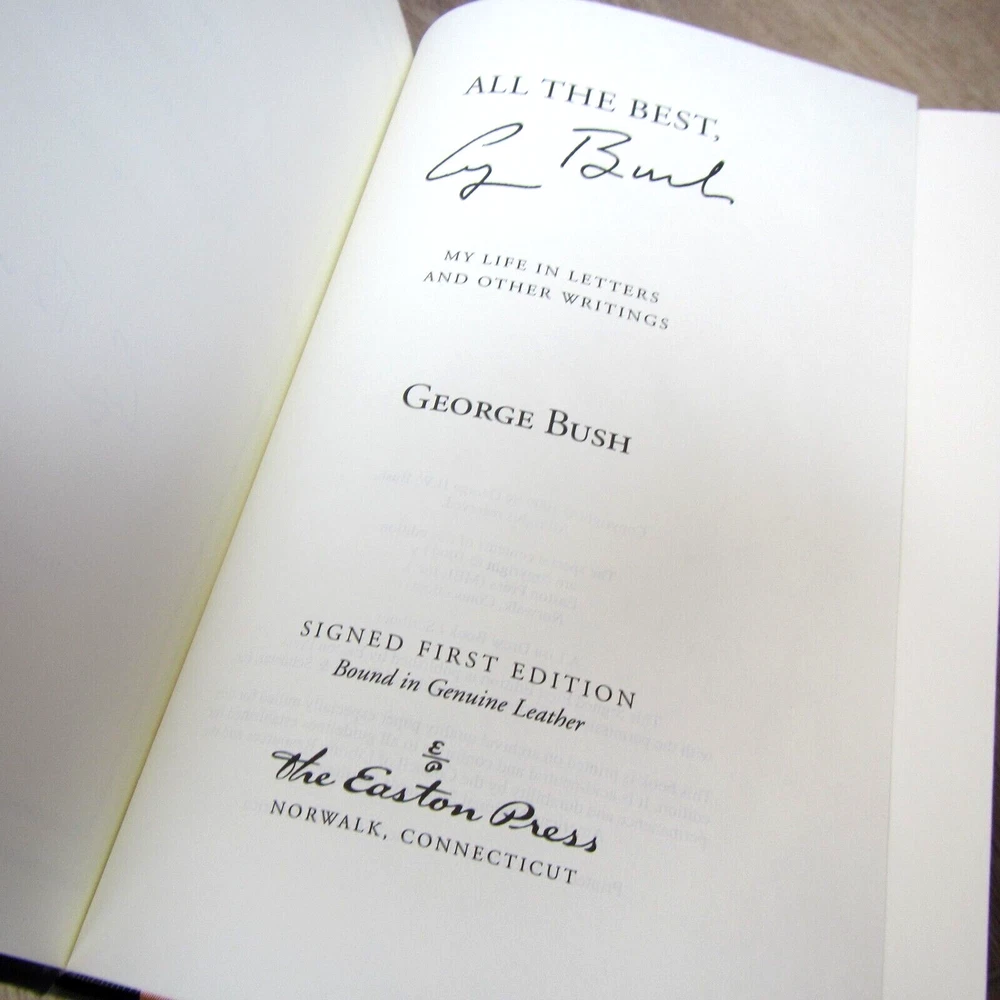 ALL THE BEST,
G Bush
MY LIFE IN LETTERS
AND OTHER WRITINGS
GEORGE BUSH
SIGNED FIRST EDITION
Bound in Genuine Leather
EP
The Easton Press
NORWALK, CONNECTICUT